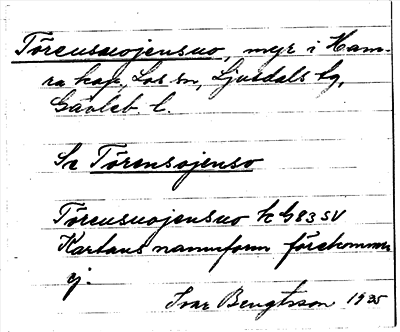 Törensuojensuo, myr i Ham-
ra kap, Los sn, Ljusdals tg,
Gävleb. l.
Se Törensojenso
Törensuojensuo k G 83 SV
Kartans namnform förekommer
ej.
Ivar Bengtsson 1935